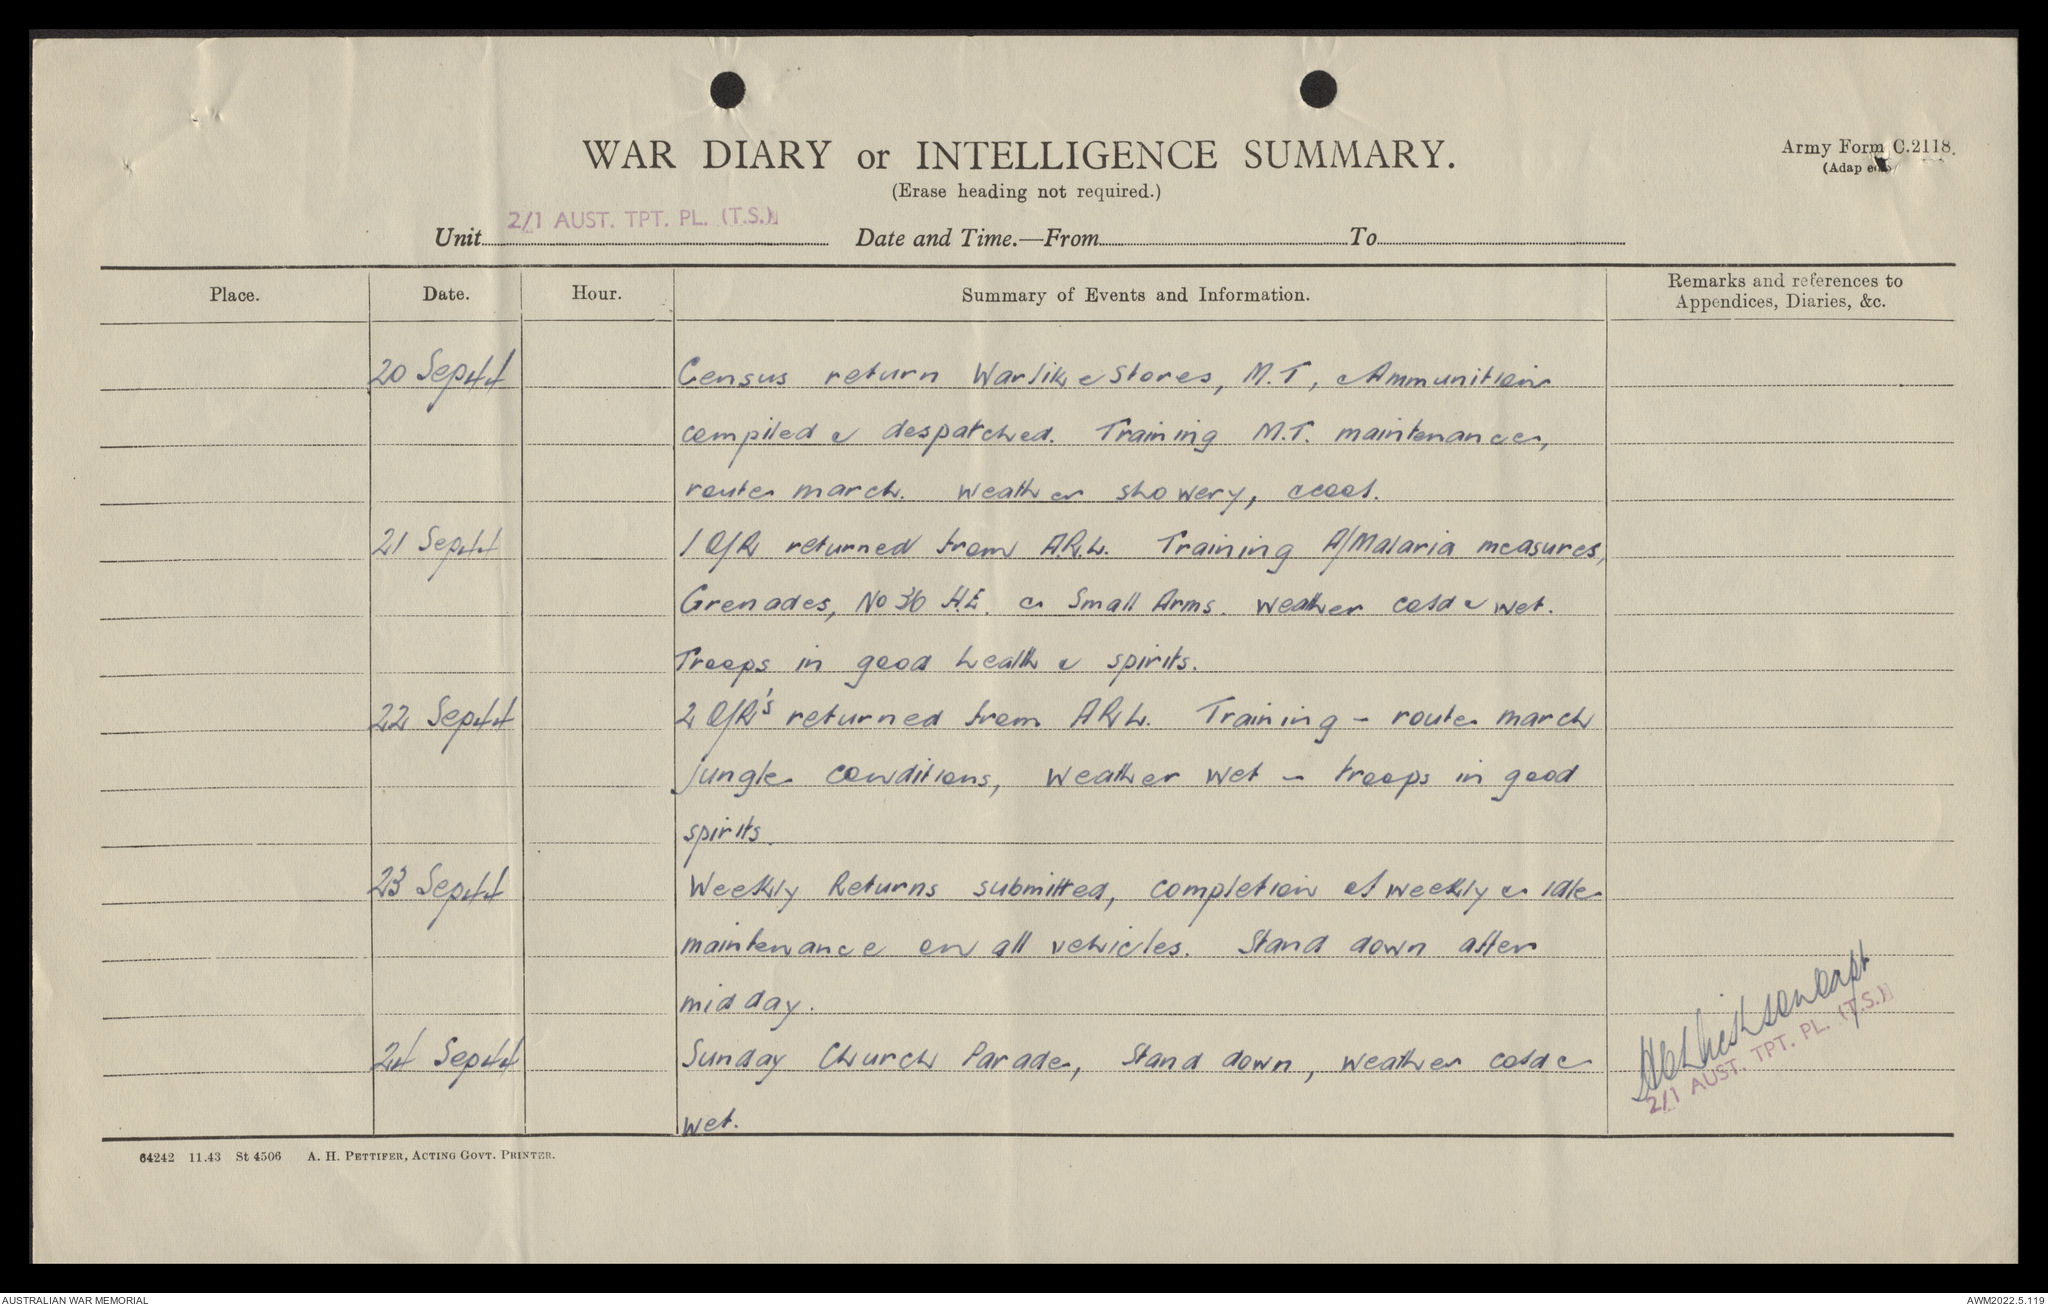 WAR DIARY or INTELLIGENCE SUMMARY.
Army Form C.2118.
(Erase heading not required.)
(Adap ed)
Unit 2/1 AUST. TPT. PL. (T.S.) Date and Time.—From To
Place. Date. Hour. Summary of Events and Information. Remarks and references to
Appendices, Diaries, &c.
20 Sep 44 Census return Warlike Stores, M.T, & Ammunition
compiled & despatched. Training M.T. maintenance,
route march. Weather showery, cool.
21 Sep 44 1 O/R returned from A.R.L. Training A/Malaria measures,
Grenades, No 36 H.E. & Small Arms. Weather cold & wet.
Troops in good health & spirits.
22 Sep 44 2 O/R's returned from ARL. Training - route march
jungle conditions, Weather wet - troops in good
spirits.
23 Sep 44 Weekly Returns submitted, completion of weekly & idle
maintenance on all vehicles. Stand down after
midday.
24 Sep 44 Sunday Church Parade, Stand down, weather cold &
wet.
Capt
2/1 AUST. TPT. PL. (T.S.)
64242 11.43 St 4506 A. H. PETTIFER, ACTING GOVT. PRINTER.
AUSTRALIAN WAR MEMORIAL AWM2022.5.119